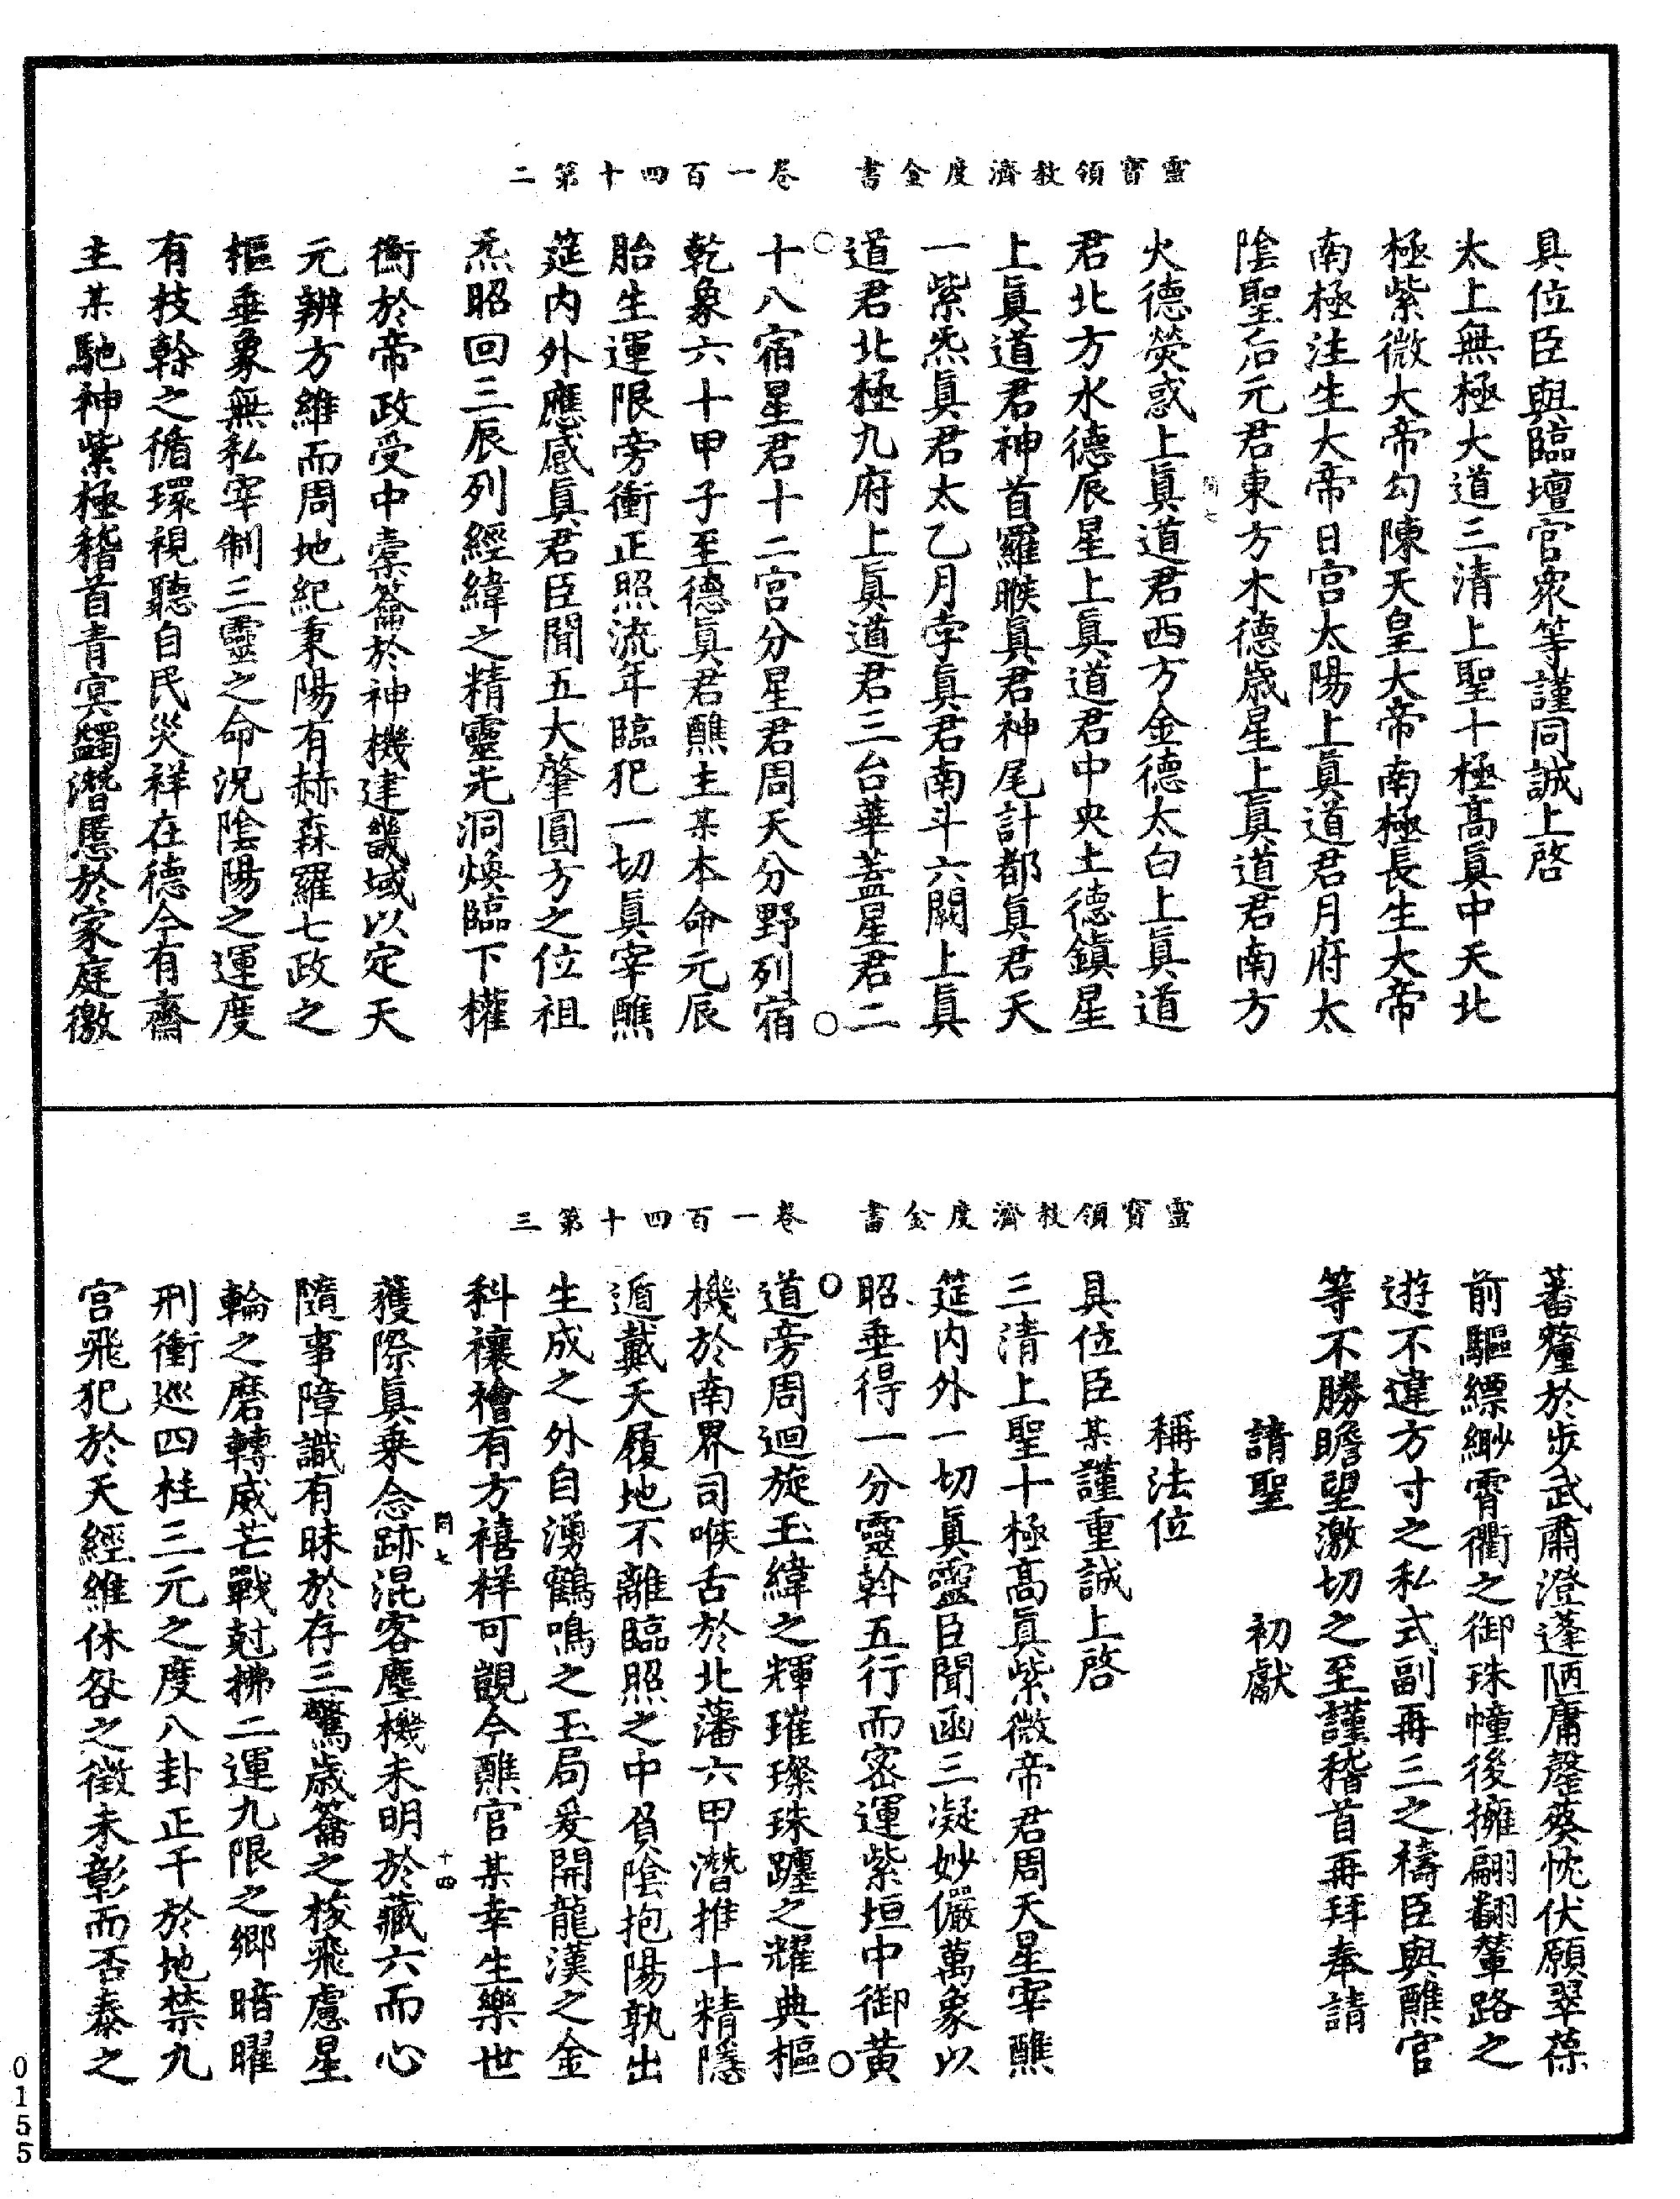 靈寶領教濟度金書 卷一百四十第二
具位臣與臨壇官衆等謹同誠上啓
太上無極大道三清上聖十極高眞中天北
極紫微大帝勾陳天皇大帝南極長生大帝
南極注生大帝日宮太陽上眞道君月府太
陰聖后元君東方木德歲星上眞道君南方
火德熒惑上眞道君西方金德太白上眞道
君北方水德辰星上眞道君中央土德鎮星
上眞道君神首羅睺眞君神尾計都眞君天
一紫炁眞君太乙月孛眞君南斗六闕上眞
道君北極九府上眞道君三台華蓋星君二
十八宿星君十二宮分星君周天分野列宿
乾象六十甲子至德眞君醮主某本命元辰
胎生運限旁衝正照流年臨犯一切眞宰醮
筵內外應感眞君臣聞五大肇圓方之位祖
炁昭回三辰列經緯之精靈光洞煥臨下權
衡於帝政受中槖籥於神機建畿域以定天
元辨方維而周地紀秉陽有赫森羅七政之
樞垂象無私宰制三靈之命況陰陽之運度
有枝榦之循環視聽自民災祥在德今有齋
主某馳神紫極稽首青冥蠲潛慝於家庭徼
靈寶領教濟度金書 卷一百四十第三
蕃釐於步武肅澄蓬陋庸罄葵忱伏願翠葆
前驅縹緲霄衢之御珠幢後擁翩翻輦路之
遊不違方寸之私式副再三之禱臣與醮官
等不勝瞻望激切之至謹稽首再拜奉請
請聖 初獻
稱法位
具位臣某謹重誠上啓
三清上聖十極高眞紫微帝君周天星宰醮
筵內外一切眞靈臣聞函三凝妙儼萬象以
昭垂得一分靈斡五行而密運紫垣中御黃
道旁周迴旋玉緯之輝璀璨珠躔之耀典樞
機於南界司喉舌於北藩六甲潛推十精隱
遁戴天履地不離臨照之中負陰抱陽孰出
生成之外自湧鶴鳴之玉局爰開龍漢之金
科禳禬有方禧祥可覬今醮官某幸生樂世
獲際眞乘念跡混客塵機未明於藏六而心
隨事障識有昧於存三驚歲籥之梭飛慮星
輪之磨轉威芒戰尅拂二運九限之鄉暗曜
刑衝巡四柱三元之度八卦正干於地禁九
宮飛犯於天經維休咎之徵未彰而否泰之
問七
十四
0155